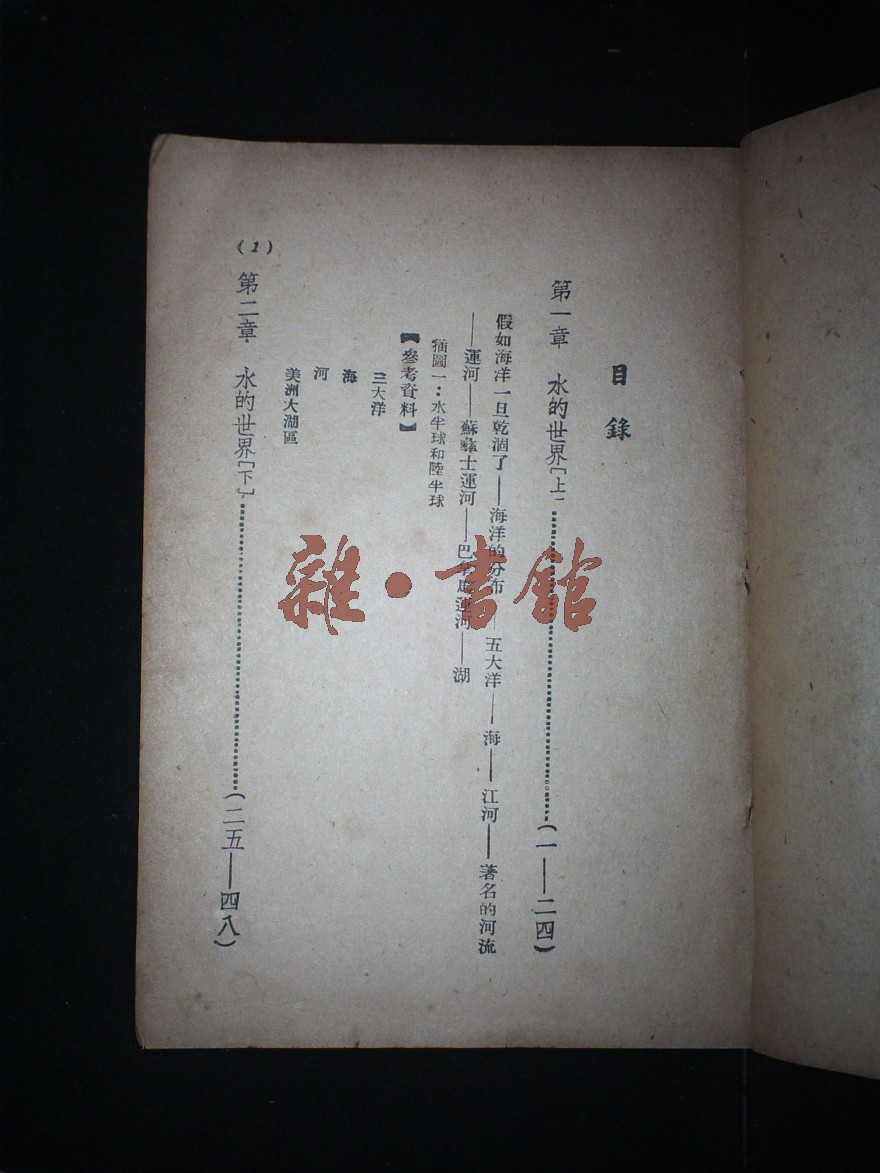 目錄
第一章 水的世界〔上〕……(一——二四)
假如海洋一旦乾涸了——海洋的分布——五大洋——海——江河——著名的河流
——運河——蘇彝士運河——巴拿馬運河——湖
插圖一：水半球和陸半球
【參考資料】
三大洋
海
河
美洲大湖區
第二章 水的世界〔下〕……(二五——四八)
(1)
雜·書館